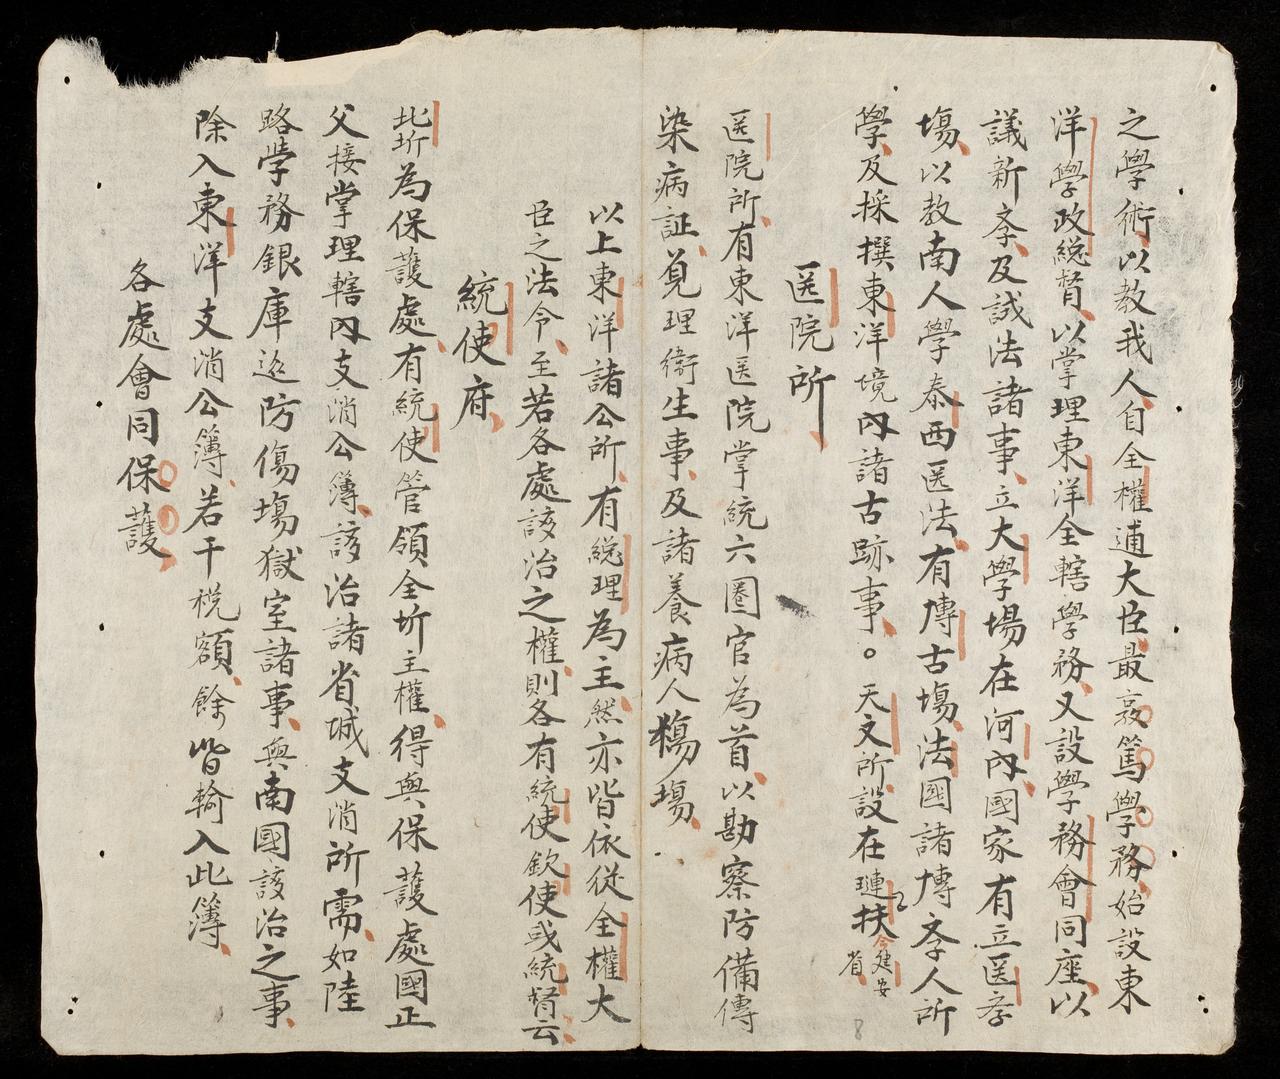 之學術以教我人自全權逋大臣最哀篤學務始設東
洋學政総督以掌理東洋全轄學務又設學務會同座以
議新斈及試法諸事立大學場在河內國家有立医斈
塲以教南人學泰西医法有博古塲法國諸博斈人所
學及採撰東洋境內諸古跡事。天文所設在璉扶今建安省
医院所
医院所有東洋医院掌統六圈官為首以勘察防備傳
染病証見理衛生事及諸養病人塲
以上東洋諸公所有総理為主然亦皆依従全權大
臣之法令至若各處該治之權則各有統使欽使或統督云
統使府
北圻為保護處有統使管領全圻主權得與保護處國正
父接掌理轄內支消公簿該治諸省城支消所需如陸
路學務銀庫巡防傷塲獄室諸事與南國該治之事
除入東洋支消公簿若干税額餘皆輸入此簿
各處會同保護